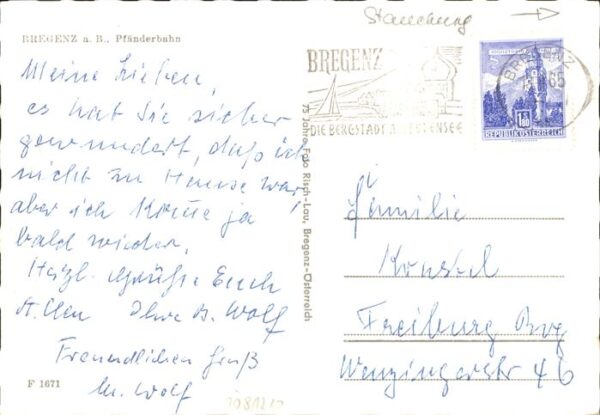 Stauchung
BREGENZ a. B., Pfänderbahn
Meine Lieben,
es hat Sie sicher
gewundert, daß ich
nicht zu Hause war,
aber ich komme ja
bald wieder.
Herzl. Grüße Euch
Allen Ihre B. Wolf
Freundlichen Gruß
M. Wolf
F 1671
75 Jahre Foto Risch-Lau, Bregenz-Österreich
BREGENZ
DIE BERGSTADT AM BODENSEE
BREGENZ
65
1.80
REPUBLIK ÖSTERREICH
Familie
Freiburg Brg
Wenzingerstr 46